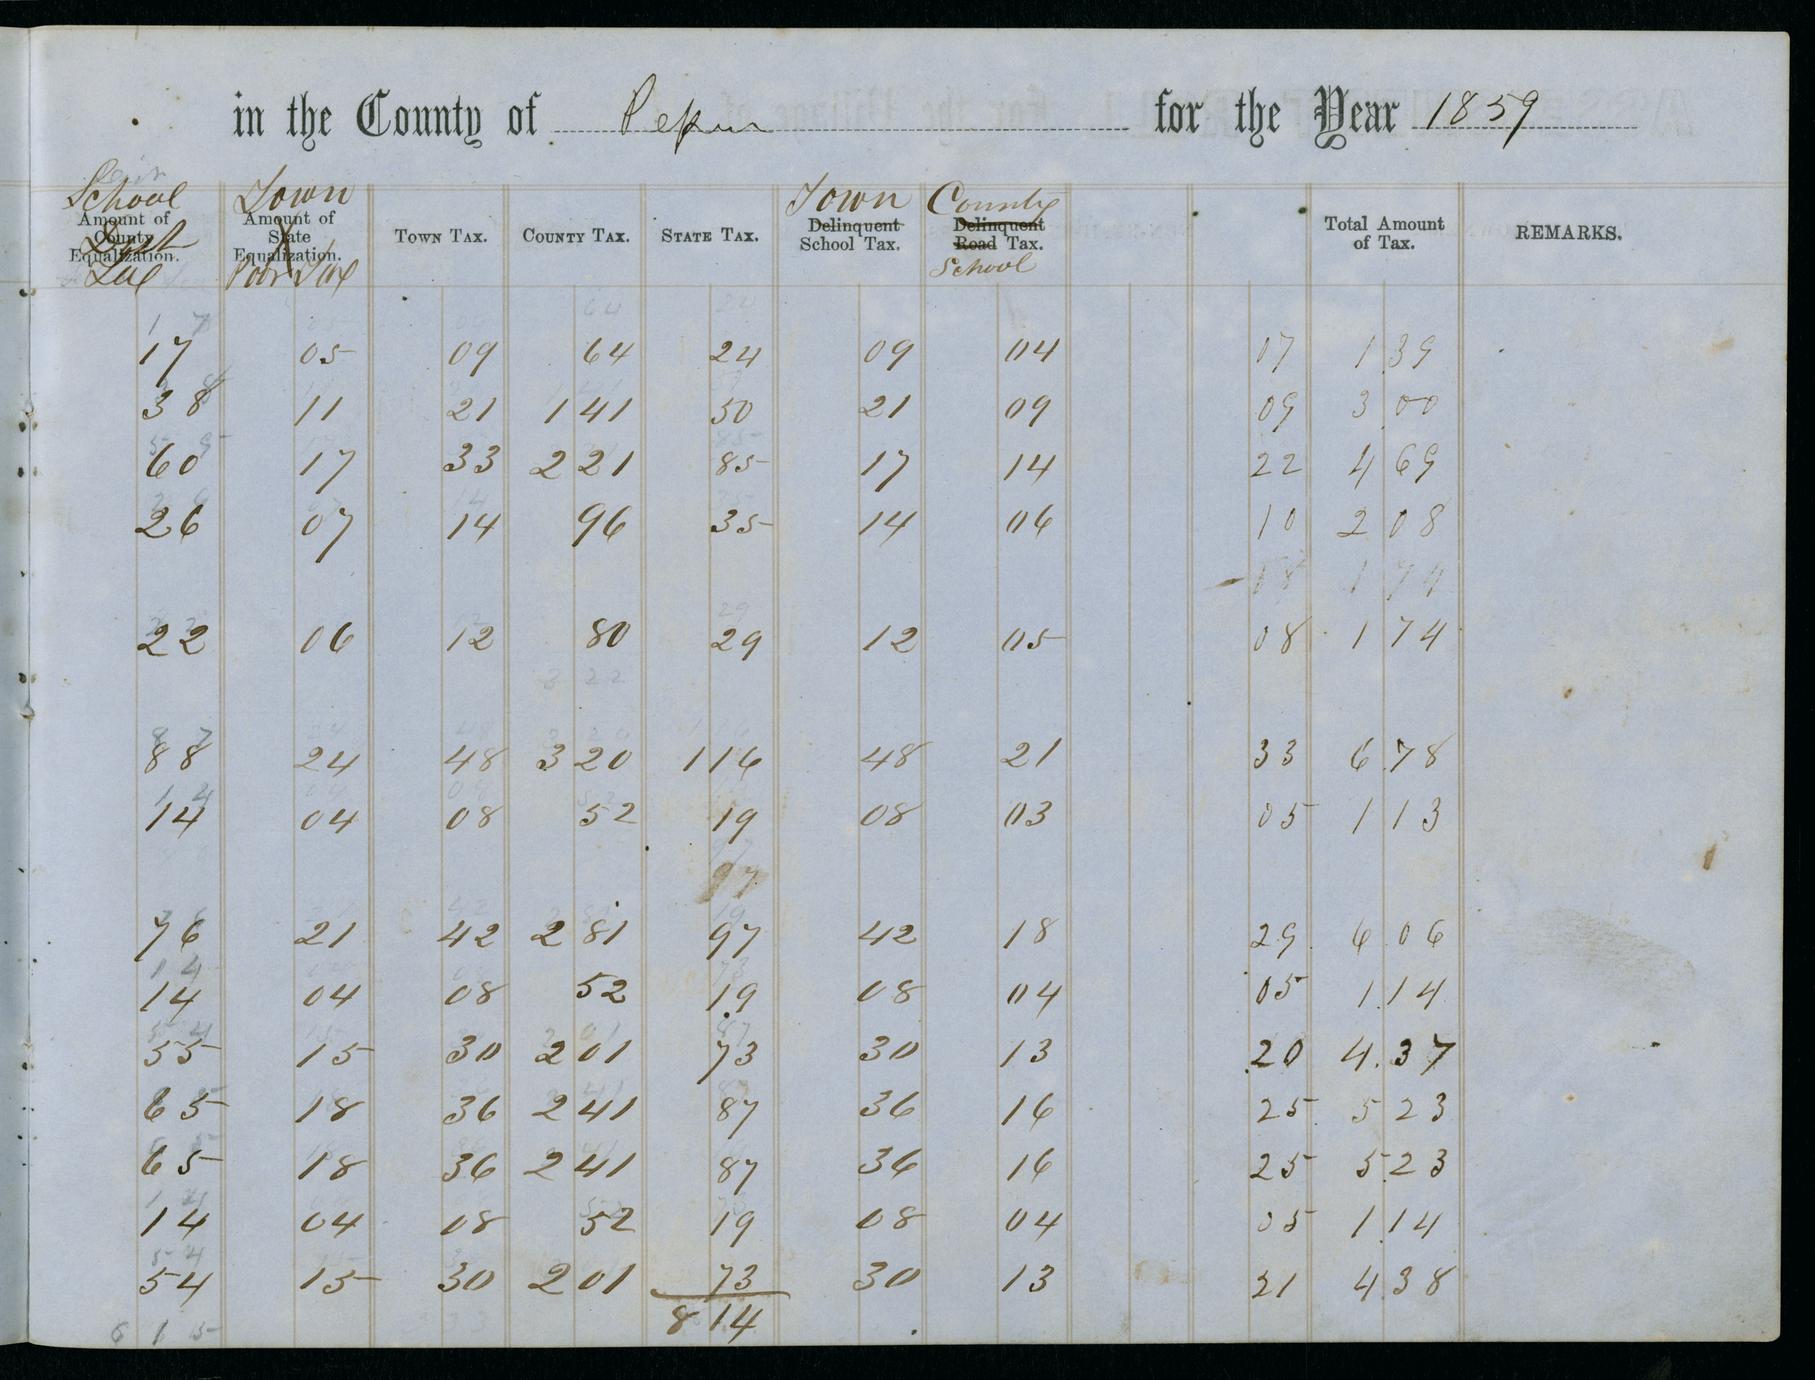 in the County of Pepin for the Year 1859
School Town Town County
Amount of County Equalization. Amount of State Equalization. Town Tax. County Tax. State Tax. Delinquent School Tax. Delinquent Road Tax. Total Amount of Tax. REMARKS.
Tax Poor Tax School
17 05 09 64 24 09 04 07 1 39
38 11 21 1 41 50 21 09 09 3 00
60 17 33 2 21 85 17 14 22 4 69
26 07 14 96 35 14 06 10 2 08
18 1 74
22 06 12 80 29 12 05 08 1 74
3 22
88 24 48 3 20 1 16 48 21 33 6 78
14 04 08 52 19 08 03 05 1 13
97
76 21 42 2 81 97 42 18 29 6 06
14 04 08 52 19 08 04 05 1 14
55 15 30 2 01 73 30 13 20 4 37
65 18 36 2 41 87 36 16 25 5 23
65 18 36 2 41 87 36 16 25 5 23
14 04 08 52 19 08 04 05 1 14
54 15 30 2 01 73 30 13 21 4 38
6 15 8 14